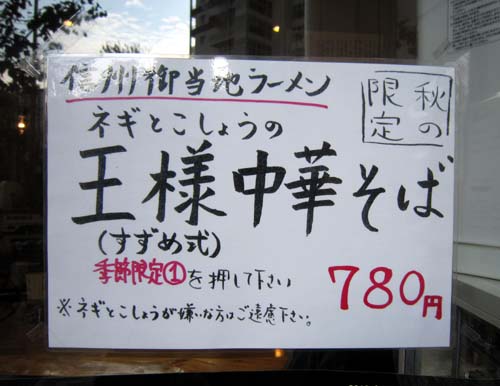 信州御当地ラーメン
秋の
限定
ネギとこしょうの
王様中華そば
(すずめ式)
季節限定①を押して下さい
780円
※ネギとこしょうが嫌いな方はご遠慮下さい。